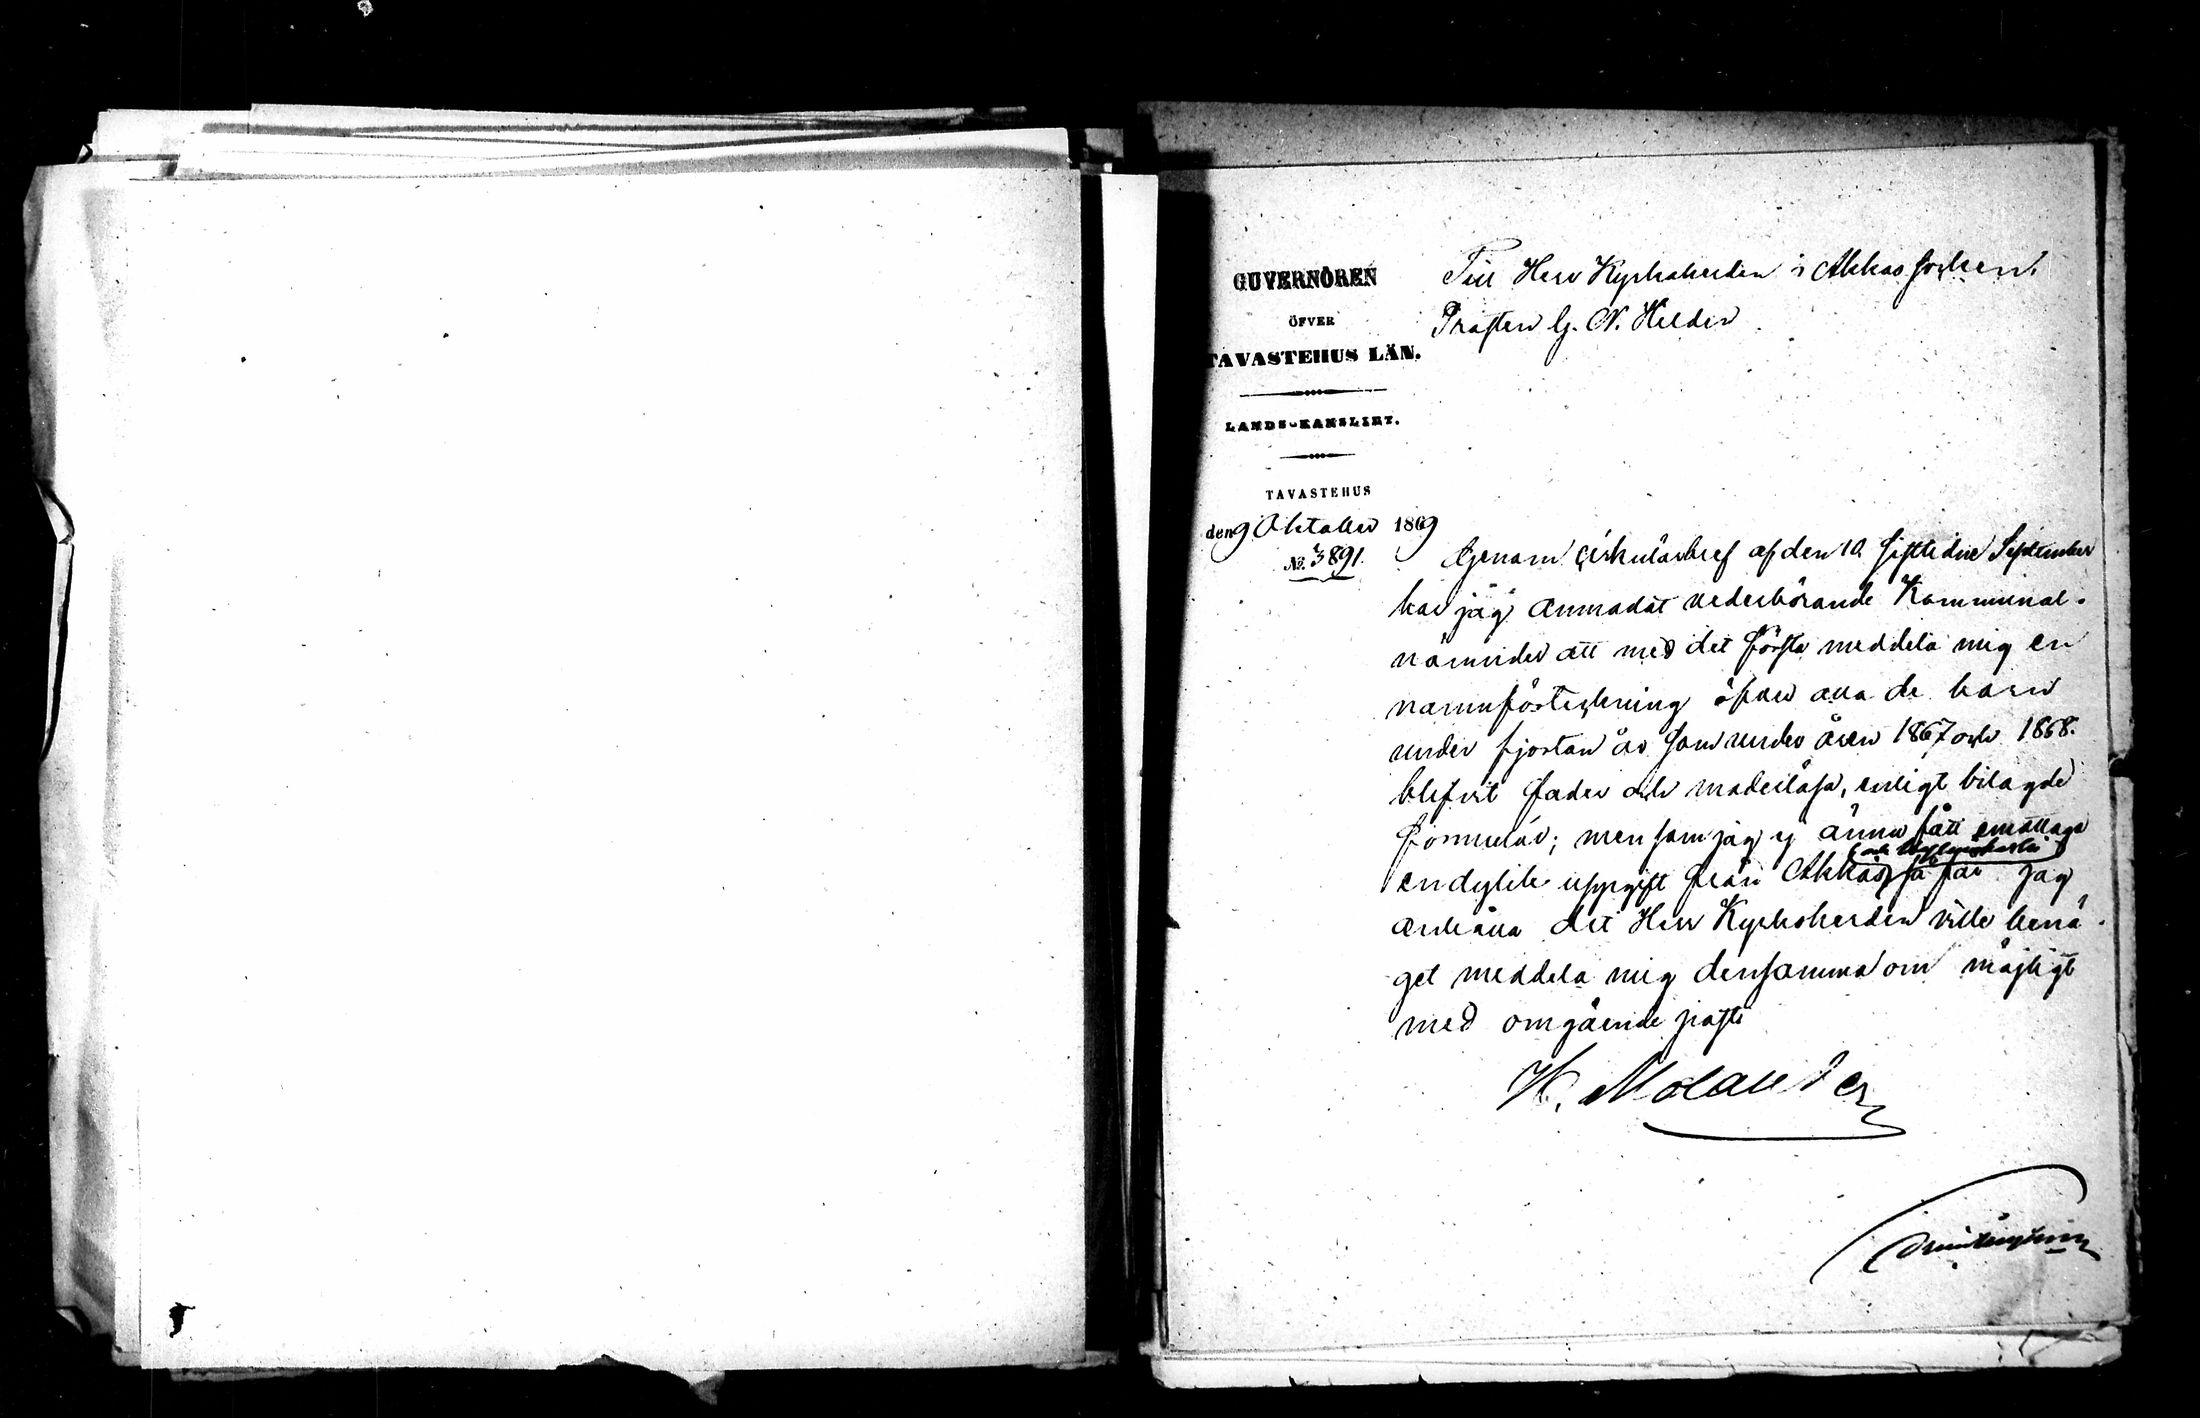 GUVERNÖREN
ÖFVER
TAVASTEHUS LÄN.
LANDS-KANSLIET.
TAVASTEHUS
den 9 Oktober 1869
No. 3891.
Till Herr Kyrkoherden i Akkas socken,
Prosten G. N. Helder
Genom cirkulärbref af den 10 sistlidne September
har jag anmodat vederbörande Kommunal-
nämnder att med det första meddela mig en
namnförteckning öfver alla de barn
under fjorton år som under åren 1867 och 1868.
blefvit fader och moderlösa, enligt bilagde
formulär; men som jag ej ännu fått emottaga
en dylik uppgift från Akkas, så får jag
anhålla det Herr Kyrkoherden ville benä-
get meddela mig densamma om möjligt
med omgående post.
H. Molander